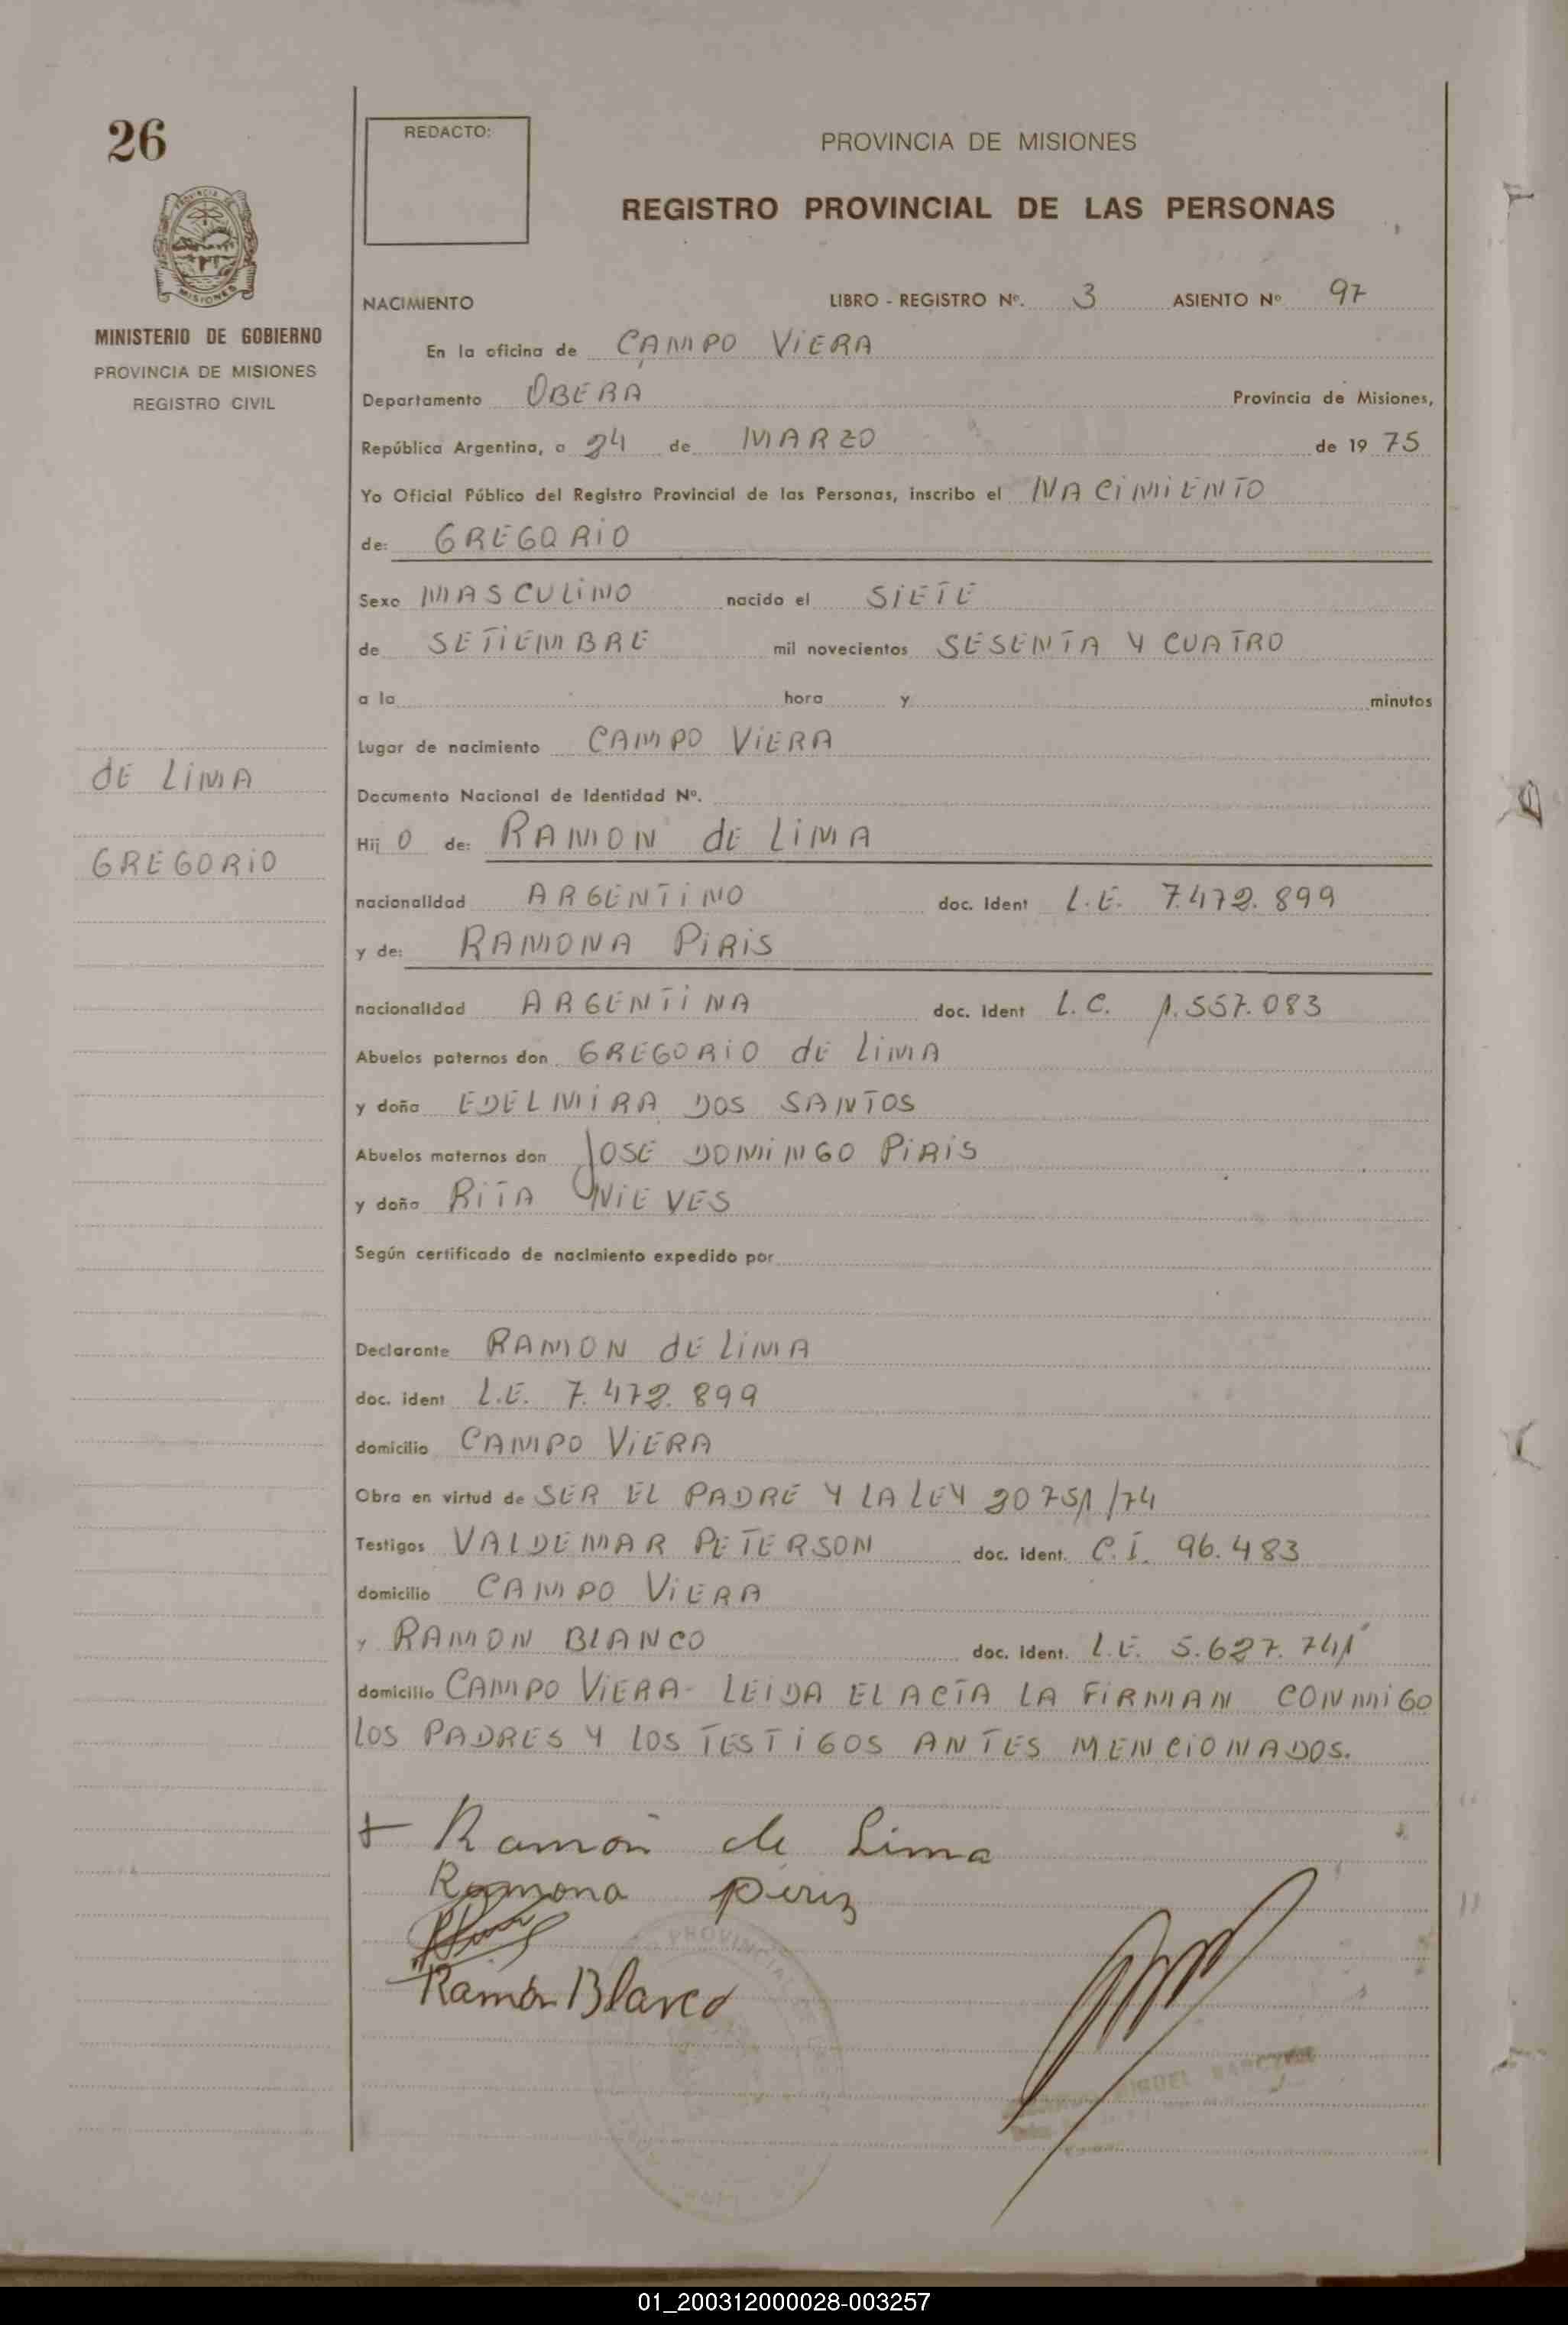 26
REDACTO:
PROVINCIA DE MISIONES
REGISTRO PROVINCIAL DE LAS PERSONAS
MISIONES
MINISTERIO DE GOBIERNO
PROVINCIA DE MISIONES
REGISTRO CIVIL
NACIMIENTO LIBRO - REGISTRO Nº. 3 ASIENTO Nº 97
En la oficina de CAMPO VIERA
Departamento OBERA Provincia de Misiones,
República Argentina, a 24 de MARZO de 19 75
Yo Oficial Público del Registro Provincial de las Personas, inscribo el NACIMIENTO
de: GREGORIO
Sexo MASCULINO nacido el SIETE
de SETIEMBRE mil novecientos SESENTA Y CUATRO
a la hora y minutos
Lugar de nacimiento CAMPO VIERA
DE LIMA
Documento Nacional de Identidad Nº.
Hij O de: RAMON de LIMA
GREGORIO
nacionalidad ARGENTINO doc. Ident L.E. 7.472.899
y de: RAMONA PIRIS
nacionalidad ARGENTINA doc. Ident L.C. 1.557.083
Abuelos paternos don GREGORIO de LIMA
y doña EDELMIRA DOS SANTOS
Abuelos maternos don JOSE DOMINGO PIRIS
y doña RITA NIEVES
Según certificado de nacimiento expedido por
Declarante RAMON de LIMA
doc. ident L.E. 7.472.899
domicilio CAMPO VIERA
Obra en virtud de SER EL PADRE Y LA LEY 20751/74
Testigos VALDEMAR PETERSON doc. ident. C.I. 96.483
domicilio CAMPO VIERA
y RAMON BLANCO doc. Ident. L.E. 5.627.741
domicilio CAMPO VIERA- LEIDA EL ACTA LA FIRMAN CONMIGO
LOS PADRES Y LOS TESTIGOS ANTES MENCIONADOS.
+ Ramón de Lima
Ramona piriz
Ramón Blanco
PROVINCIAL DE
MIGUEL
01_200312000028-003257